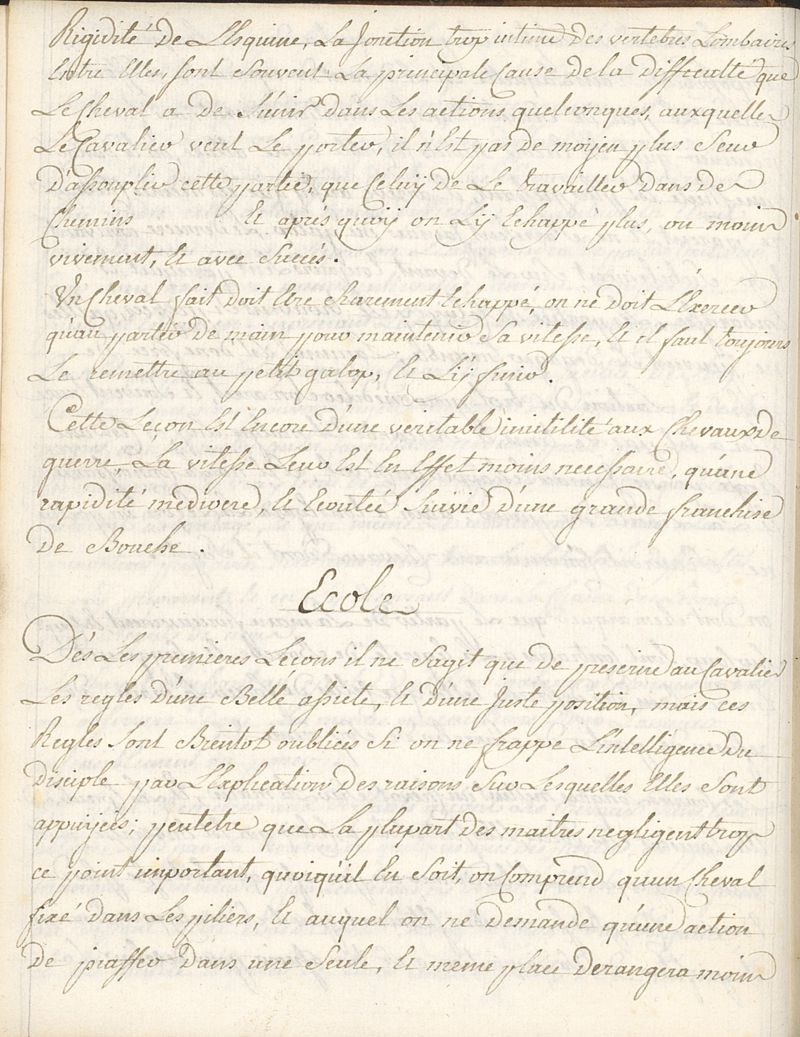 Rigidité de L'Esquine, La Jonction trop intime des vertebres Lombaires
Entre Elles, sont souvent La principale Cause de la difficulté que
Le Cheval a de s'unir dans Les actions quelconques, auxquelles
Le Cavalier veut Le porter, il n'Est pas de moijen plus Seur
D'assouplir cette partie, que Celuij de Le travailler Dans des
Chemins Et aprés quoij on L'ij Echappe plus, ou moins
vivement, Et avec Succés.
Un Cheval fait doit Etre rarement Echappé, on ne doit L'Exercer
qu'au partir de main pour maintenir Sa vitesse, Et il faut toujours
Le remettre au petit galop, Et L'ij finir.
Cette Leçon Est Encore d'une veritable inutilité aux Chevaux de
guerre, La vitesse Leur Est En Effet moins necessaire, qu'une
rapidité mediocre, Et Ecoutée Suivie d'une grande franchise
de Bouche.
Ecole
Dés Les premieres Leçons il ne Sagit que de prescrire au Cavalier
Les regles d'une Belle assiete, Et d'une Juste position, mais ces
Regles Sont Bientot oubliées Si on ne frappe L'intelligence du
disciple par L'Explication des raisons Sur Lesquelles Elles Sont
appuijées; peutetre que La plupart des maitres negligent trop
ce point important, quoiquil En Soit, on Comprend qu'un Cheval
fixé dans Les piliers, Et auquel on ne demande qu'une action
de piaffer dans une Seule, Et meme place derangera moins